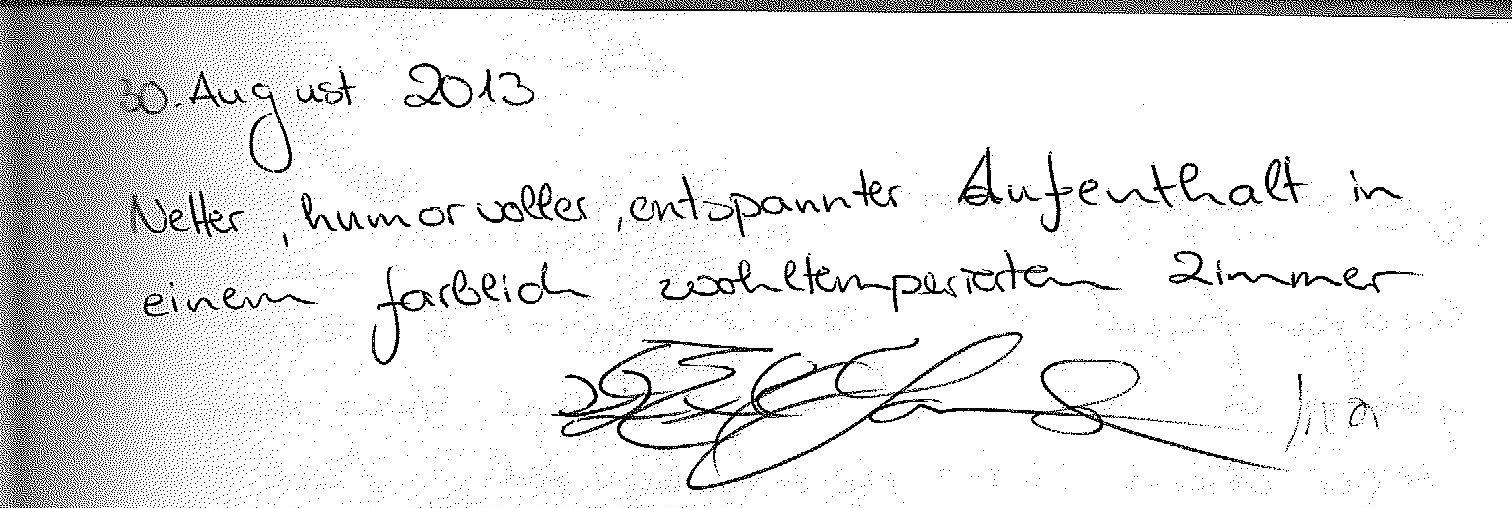 30. August 2013
Netter, humorvoller, entspannter Aufenthalt in
einem farblich wohltemperierten Zimmer